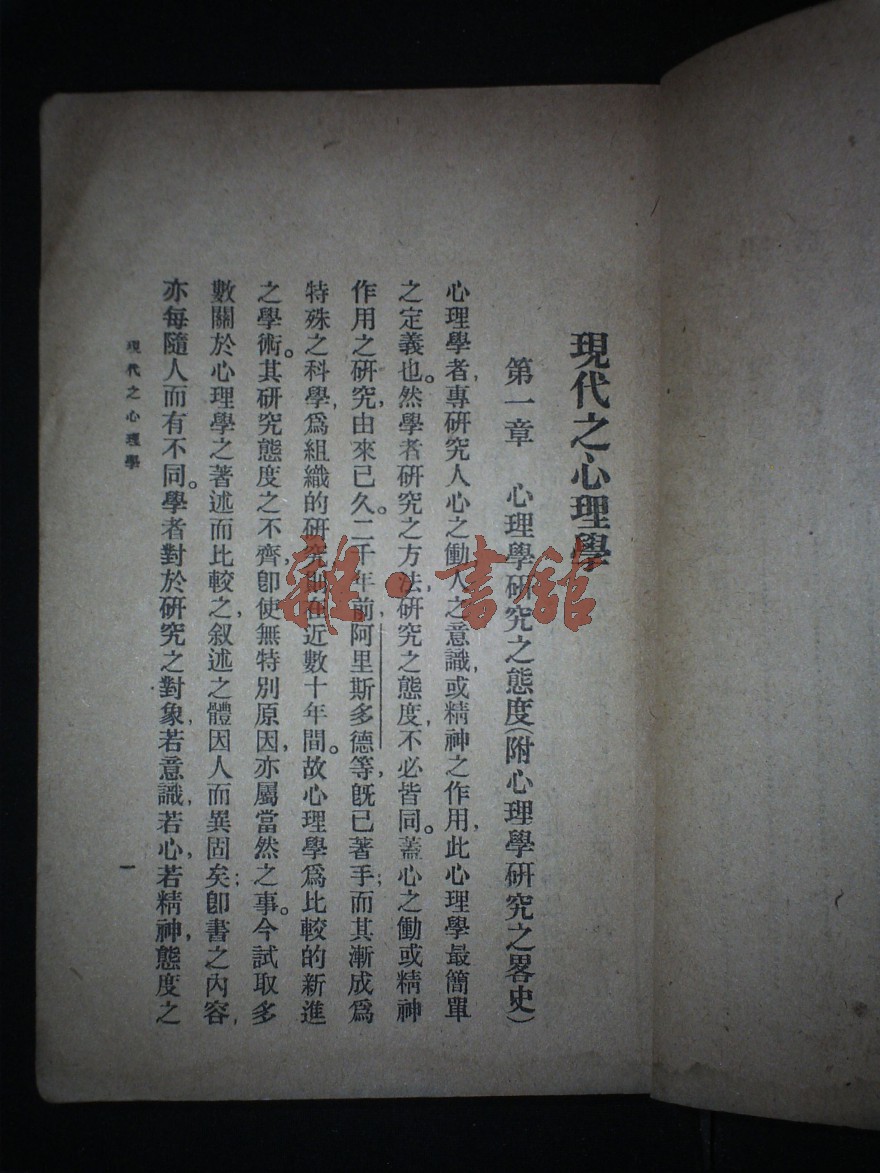 現代之心理學
第一章　心理學研究之態度(附心理學研究之畧史)
心理學者,專研究人心之働,人之意識,或精神之作用,此心理學最簡單
之定義也。然學者研究之方法,研究之態度,不必皆同。蓋心之働或精神
作用之研究,由來已久。二千年前,阿里斯多德等,旣已著手;而其漸成爲
特殊之科學,爲組織的研究,則在近數十年間。故心理學爲比較的新進
之學術。其研究態度之不齊,卽使無特別原因,亦屬當然之事。今試取多
數關於心理學之著述而比較之,叙述之體因人而異固矣;卽書之內容,
亦每隨人而有不同。學者對於研究之對象,若意識,若心,若精神,態度之
現代之心理學
一
雜·書館